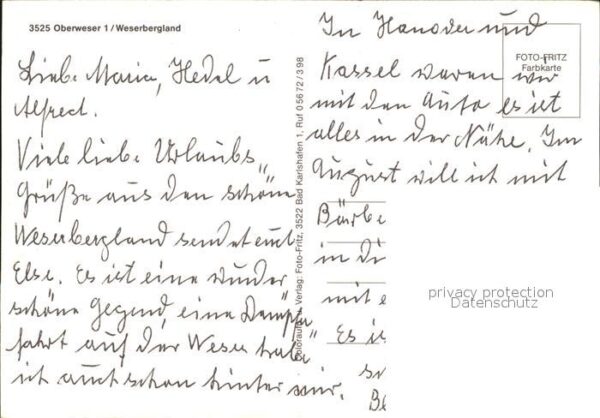 3525 Oberweser 1 / Weserbergland
Liebe Maria, Hedel u
Alfred.
Viele liebe Urlaubs„
Grüße aus den schönen
Weserbergland sendet euch
Else. Es ist eine wunder
schöne Gegend, eine Dampfer
fahrt auf der Weser habe
ich auch schon hinter mir.
Verlag: Foto-Fritz, 3522 Bad Karlshafen 1, Ruf 0 56 72 / 3 98
In Hanover und
Kassel waren wir
mit den Auto es ist
alles in der Nähe. Im
August will ich mit
Bärbe
in di
mit e
Es is
FOTO-FRITZ
Farbkarte
privacy protection
Datenschutz